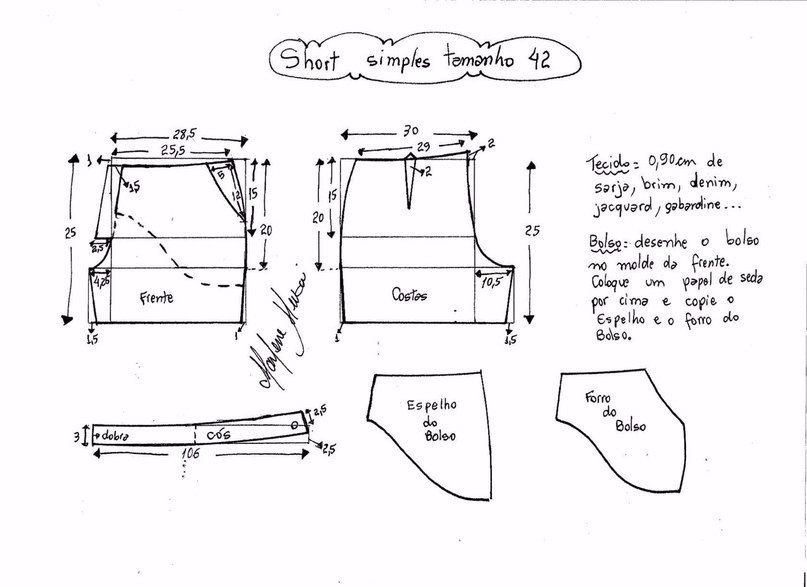 Short simples tamanho 42
28,5
25,5
1
1,5
5
12
15
25
20
2,5
4,25
Frente
1,5
1
30
29
2
2
15
20
25
Costas
10,5
1
1,5
Marlene Mukai
Tecido: 0,90cm de
sarja, brim, denim,
jacquard, gabardine...
Bolso: desenhe o bolso
no molde da frente.
Coloque um papel de seda
por cima e copie o
Espelho e o forro do
Bolso.
3
dobra
cós
2,5
2,5
106
Espelho
do
Bolso
Forro
do
Bolso